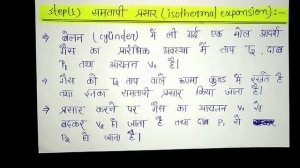 step(1) समतापी प्रसार (isothermal expansion):-
→ बेलन (cylinder) में ली गई एक मोल आदर्श
गैस का प्रारंभिक अवस्था में ताप T₂, दाब
P₁ तथा आयतन V₁ है।
→ गैस को T₂ ताप वाले ऊष्मा कुण्ड में रखते है
तथा इसका समतापी प्रसार किया जाता है।
→ प्रसार करने पर गैस का आयतन V₁ से
बढ़कर V₂ हो जाता है तथा दाब P₁ से
P₂ हो जाता है।